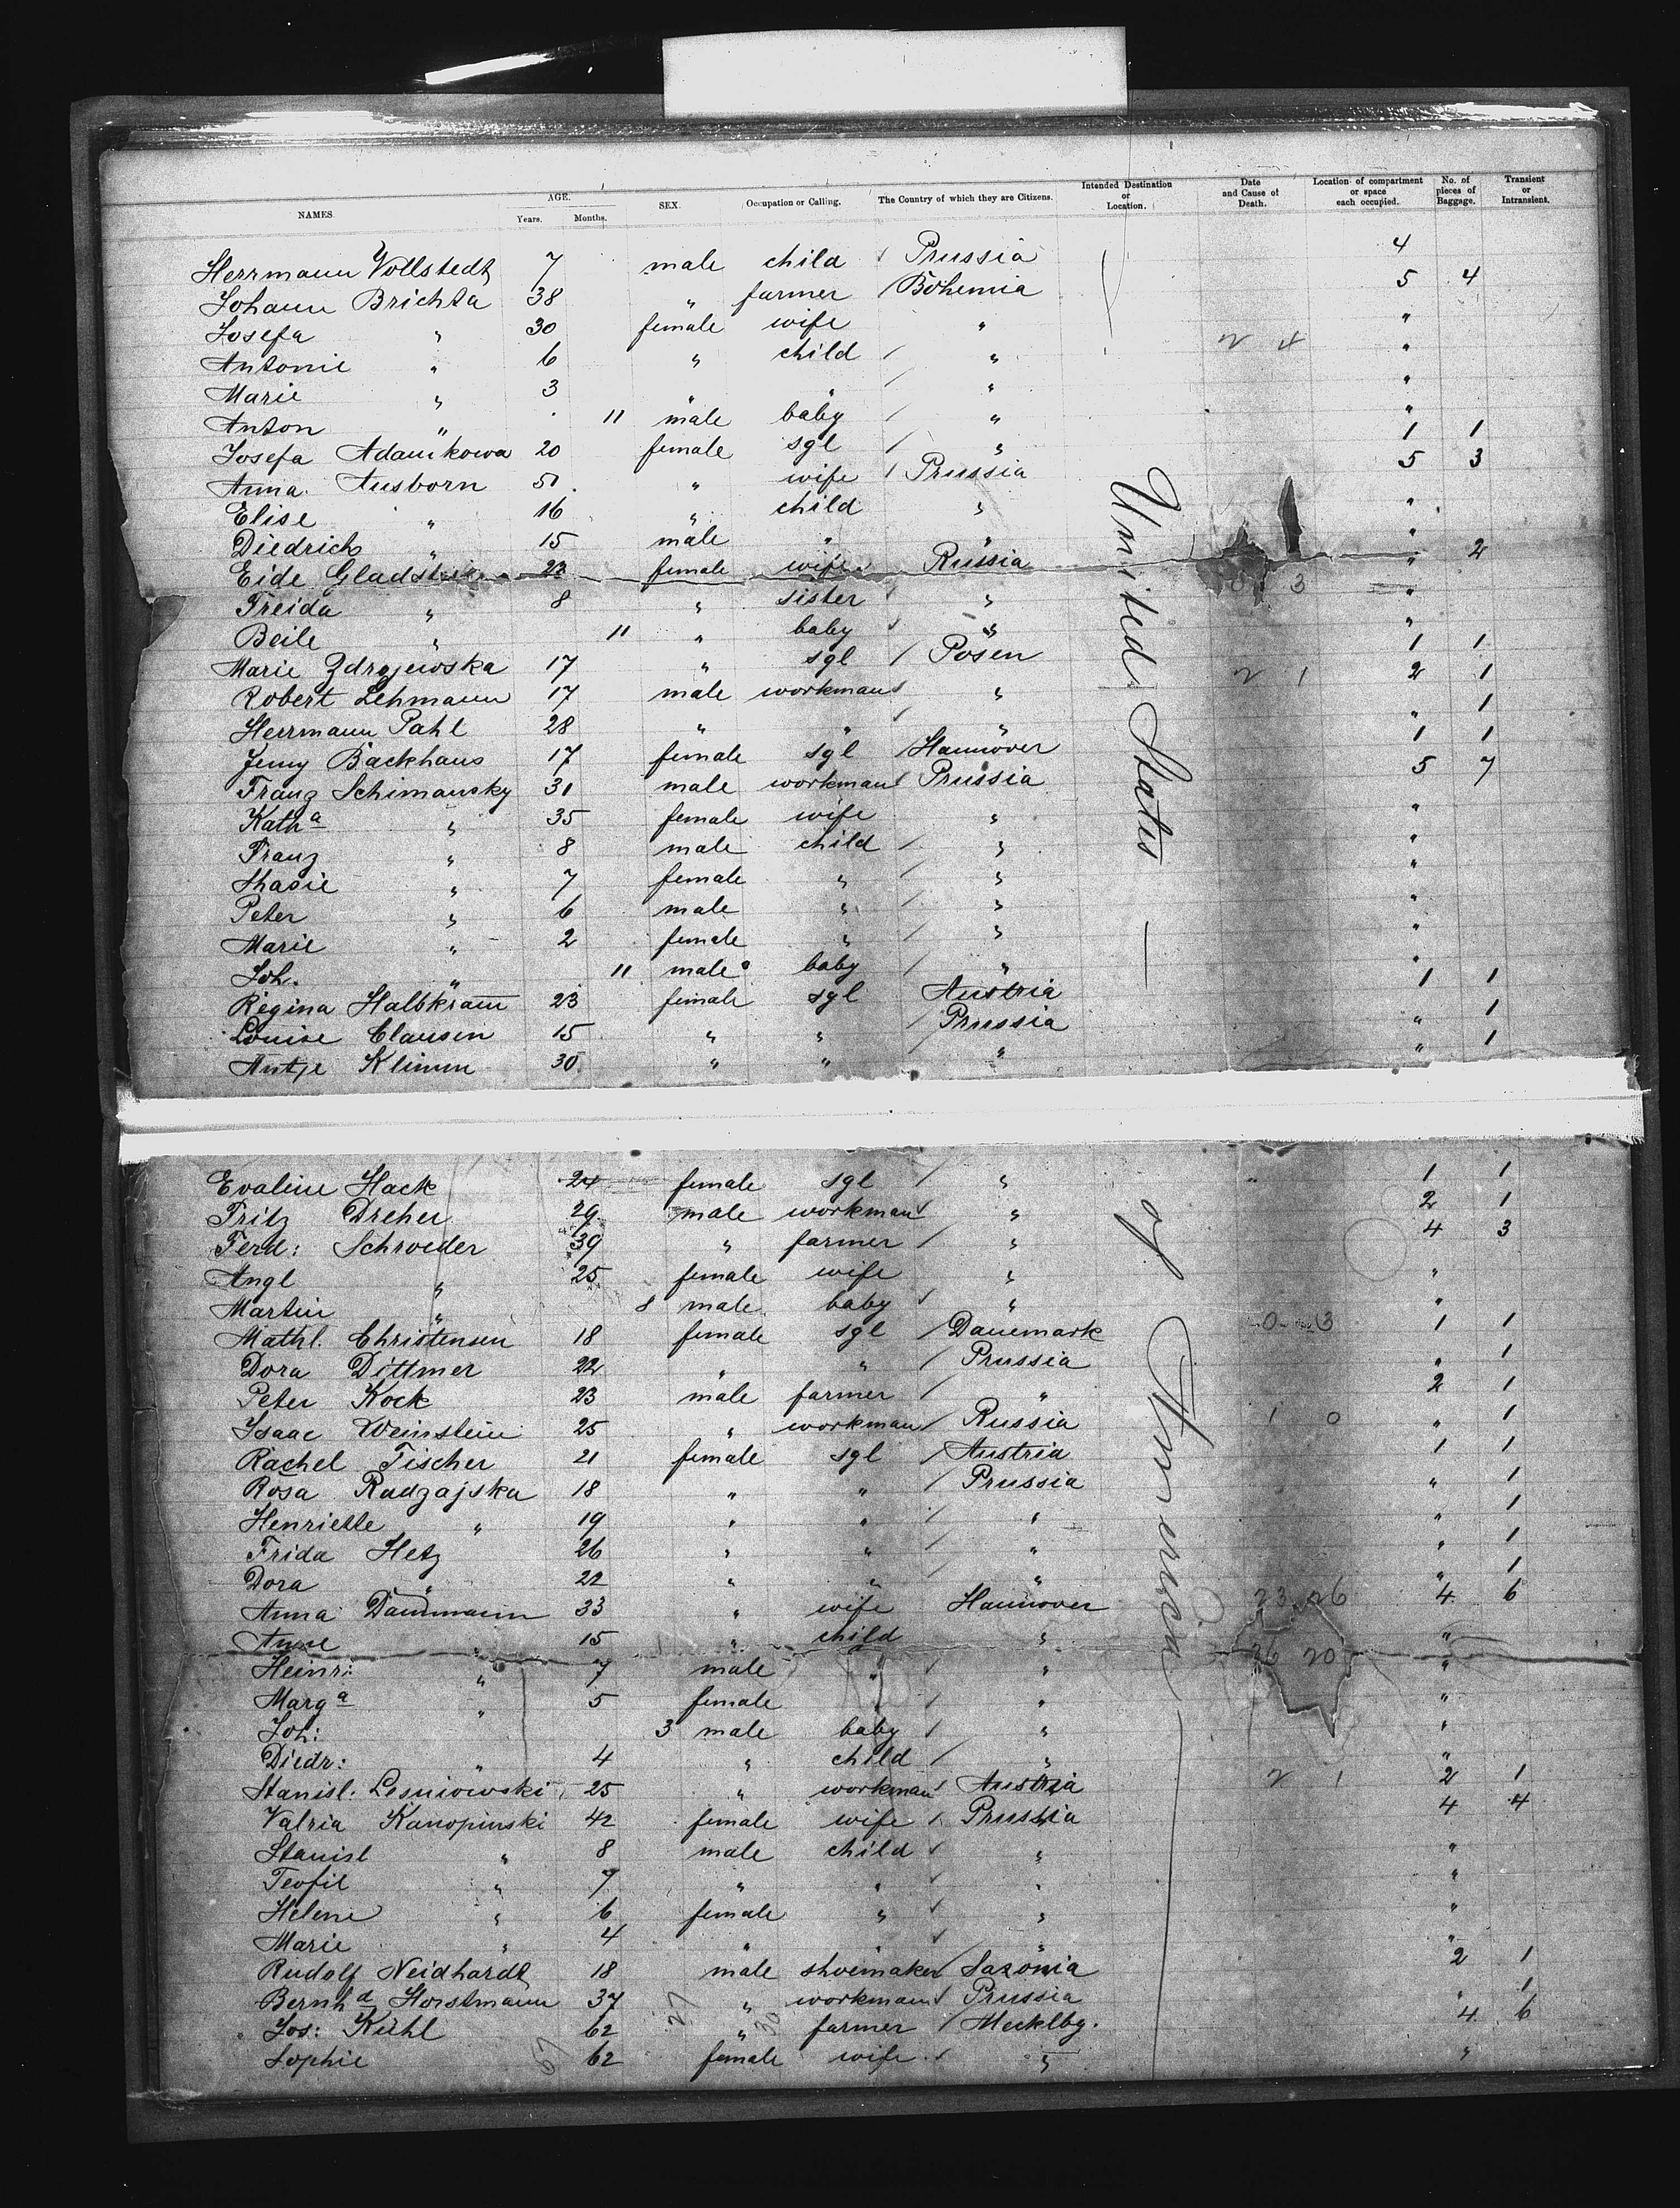 NAMES. AGE. Years. Months. SEX. Occupation or Calling. The Country of which they are Citizens. Intended Destination or Location. Date and Cause of Death. Location of compartment or space each occupied. No. of pieces of Baggage. Transient or Intransient.
Herrmann Vollstedt 7 male child Prussia 4
Johann Brichta 38 " farmer Bohemia 5 4
Josefa " 30 female wife " "
Antonie " 6 " child " 2 4 "
Marie " 3 " " " "
Anton " 11 male baby " "
Josefa Adamkowa 20 female sgl " 1 1
Anna Ausborn 51 " wife Prussia 5 3
Elise " 16 " child " "
Diedrich " 15 male " " "
Eide 23 female wife Russia " 2
Freida " 8 " sister " 3 "
Beile " 11 " baby " "
Marie Zdrojewska 17 " sgl Posen 1 1
Robert Lehmann 17 male workman " 2 1 2 1
Herrmann Pahl 28 " " " " 1
Jenny Backhaus 17 female sgl Hannover 1 1
Franz Schimansky 31 male workman Prussia 5 7
Kath<sup>a</sup> " 35 female wife " "
Franz " 8 male child " "
" 7 female " " "
Peter " 6 male " " "
Marie " 2 female " " "
Joh. " 11 male baby " "
Regina Halbkram 23 female sgl Austria 1 1
Louise Clausen 15 " " Prussia " 1
Antje Klimm 30 " " " " 1
United States — of America —
Evaline Hack 24 female sgl " 1 1
Fritz Dreher 29 male workman " 2 1
Ferd: Schroeder 39 " farmer " 4 3
Angl " 25 female wife " "
Martin " 8 male baby " "
Mathl. Christensen 18 female sgl Danemark 0 3 1 1
Dora Dittmer 22 " " Prussia " 1
Peter Kock 23 male farmer " 2 1
Isaac Weinstein 25 " workman Russia 1 0 " 1
Rachel Fischer 21 female sgl Austria 1 1
Rosa Radzajska 18 " " Prussia " 1
Henriette " 19 " " " " 1
Frida Hetz 26 " " " " 1
Dora " 22 " " " " 1
Anna Dammann 33 " wife Hannover 23 26 4 6
Anne " 15 " child " "
Heinr: " 7 male " " 26 20 "
Marg<sup>a</sup> " 5 female " " "
Joh: 3 male baby " "
Diedr: " 4 " child " "
Stanisl: Lesniowski 25 " workman Austria 2 1 2 1
Valria Kanopinski 42 female wife Prussia 4 4
Stanisl " 8 male child " "
Teofil " 7 " " " "
Helene " 6 female " " "
Marie " 4 " " " "
Rudolf Neidhardt 18 male shoemaker Saxonia 2 1
Bernh<sup>d</sup> Horstmann 37 " workman Prussia " 1
Jos: Kühl 62 " farmer Mecklbg. 4 6
Sophie 62 female wife " "
67 27 30